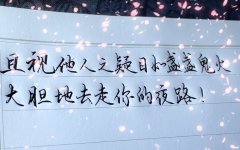 且视他人之疑目如盏盏鬼火
大胆地去走你的夜路！